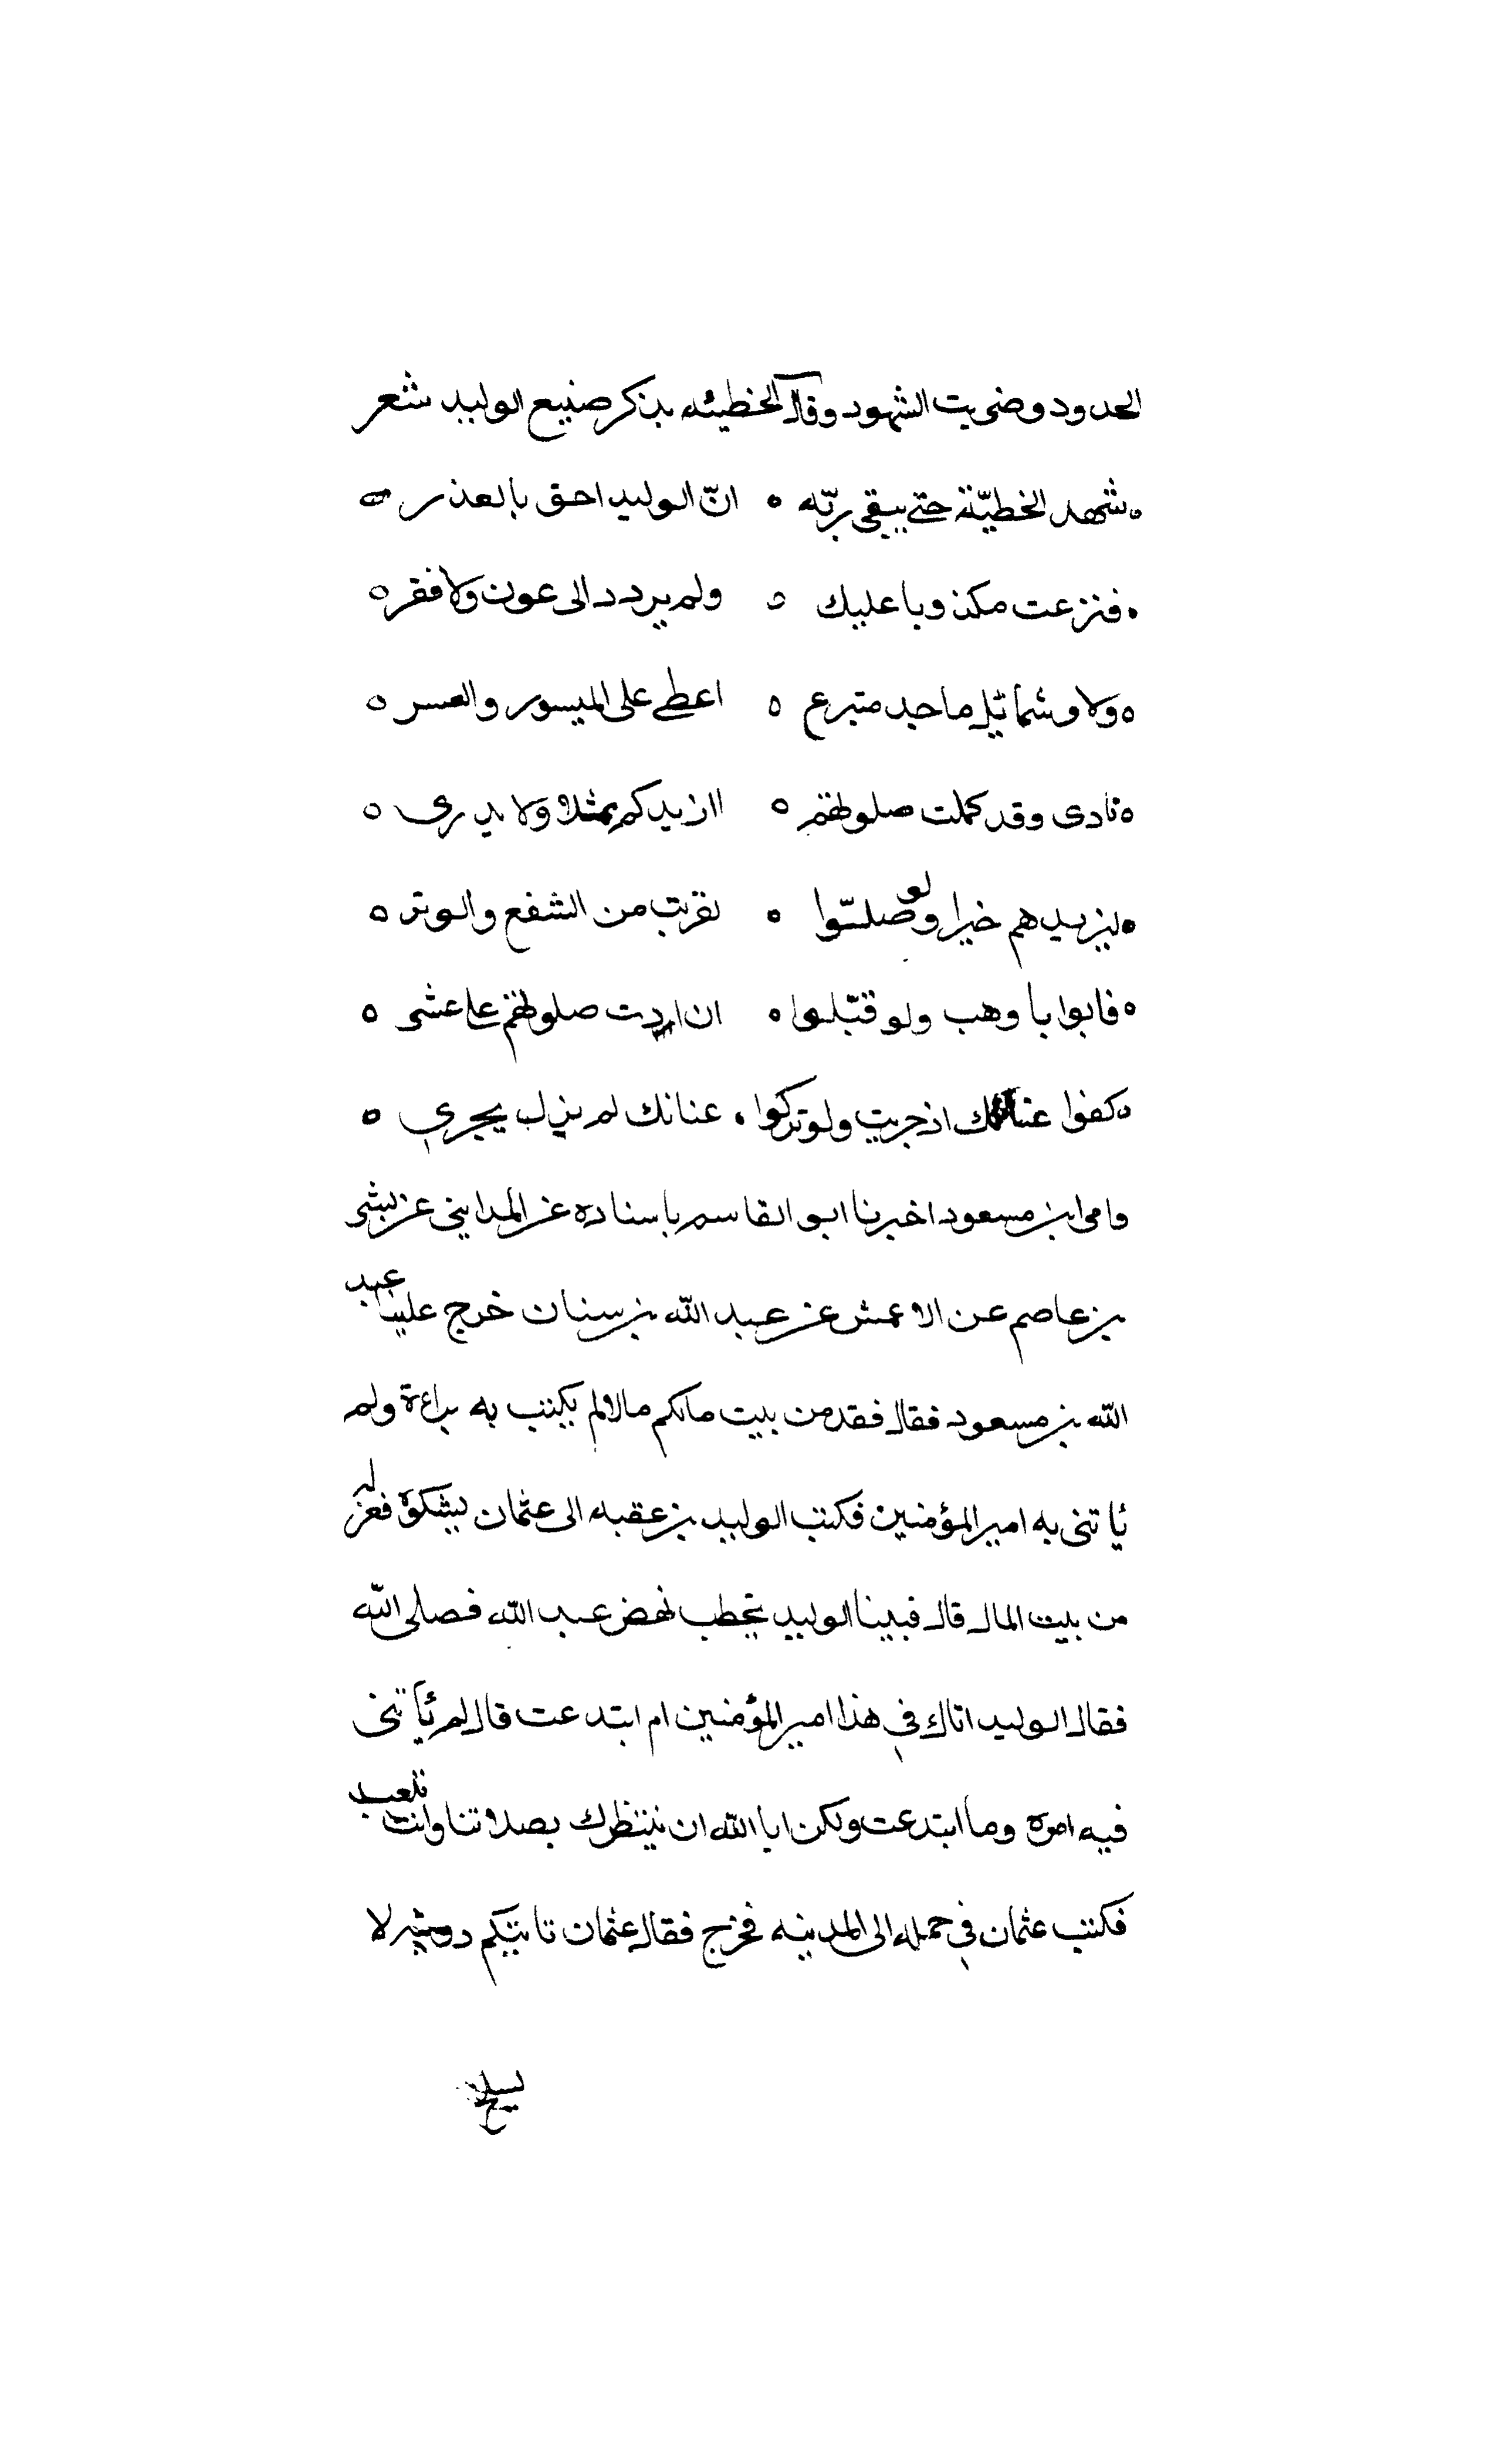 الحدود وضربت الشهود وقال الخطيئه يذكر صنيع الوليد شعر
شهد الخطيّة حتى يبقى ربّه ه انّ الوليد احق بالعذر
فنزعت مكذوبا عليك ه ولم يردد الى عون ولا فقر ه
ه ولا وشمائل ماجد متبرع ه اعطى على الميسور والعسر ه
ه نادى وقد كملت صلوتهم ه اازيدكم ثملا ولا يدرى ه
ه ليزيدهم خيرا ولو صلّوا ه لقربت من الشفع والوتر ه
ه فابوا با وهب ولو قبّلوا ه ان اردت صلوتهم على عشى ه
ه كفوا عنانك اذ جريت ولو تركوا ه عنانك لم يزل يجري ه
وامى ابن مسعود اخبرنا ابو القاسم باسناده عن المدايني عن بشى
بن عاصم عن الاعمش عن عبد الله بن سنان خرج علينا عبد
الله بن مسعود فقال فقد من بيت مالكم مالا لم يكتب به براءة ولم
ياتنى به امير المؤمنين فكتب الوليد بن عقبه الى عثمان يشكوه فعزله
من بيت المال قال فبينا الوليد يخطب نهض عبد الله فصلى الله
فقال الوليد اتاك في هذا امير المؤمنين ام ابتدعت قال لم يأتنى
فيه امره وما ابتدعت ولكن ابا الله ان ننتظرك بصلاتنا وانت تلعب
فكتب عثمان في حمله الى المدينه فخرج فقال عثمان تاتيكم دويبه لا